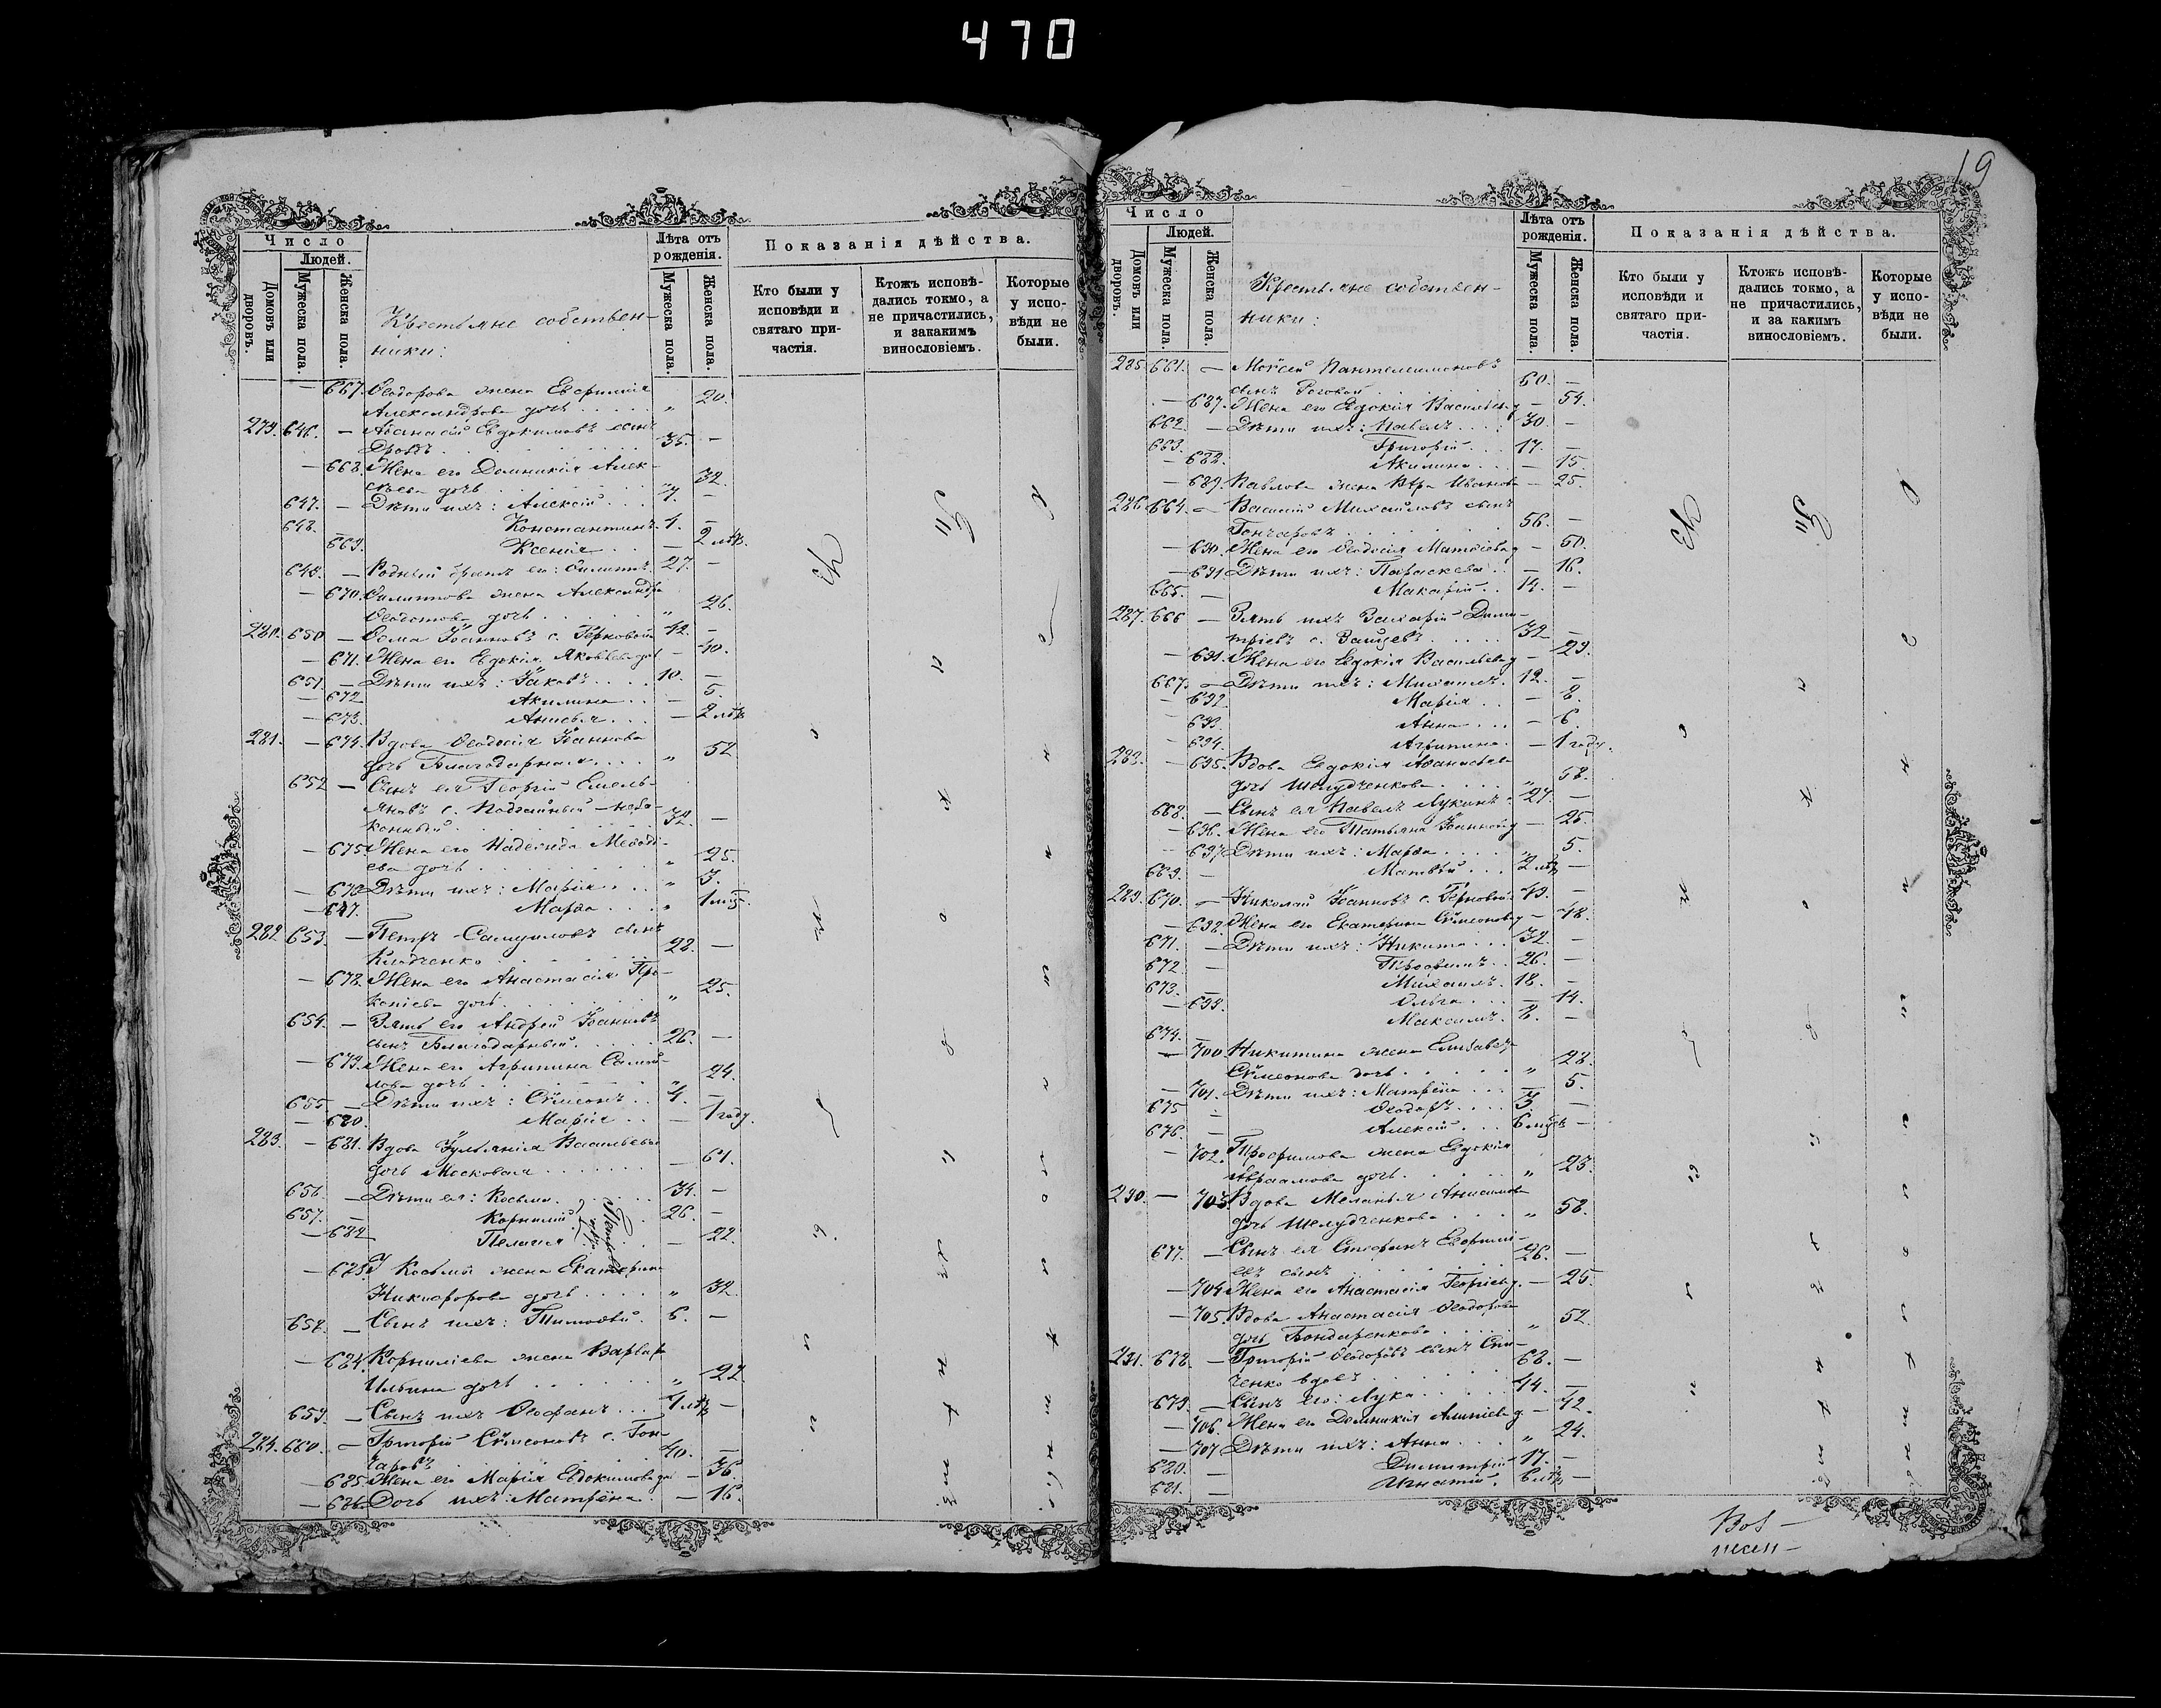 470
19
Число
Людей.
Домовъ или дворовъ.
Мужеска пола.
Женска пола.
Крестьяне собствен-
ники:
Лѣта отъ
рожденія.
Мужеска пола.
Женска пола.
Показанія дѣйства.
Кто были у
исповѣди и
святаго при-
частія.
Ктожъ исповѣ-
дались токмо, а
не причастились,
и закакимъ
винословіемъ.
Которые
у испо-
вѣди не
были.
— 667. Ѳеодорова жена Евфимія
Александрова дочь . . . . „ 20.
279. 646. — Аѳанасій Евдокимовъ сынъ
. . . 35. —
— 668. Жена его Домникія Алек-
сѣева дочь . . . 32.
647. — Дѣти ихъ: Алексій . . . 7. —
648. Константинъ. 1. —
669. Ксенія . . — 2 мѣс.
649. — Родный братъ его: Филиппъ. 27. —
— 670. Филиппова жена Александра
Ѳеодотова дочь . . . „ 26.
280. 650 — Ѳома Іоанновъ с. Терновой 42. —
— 671. Жена его Евдокія Яковлева до — 40.
651. — Дѣти ихъ: Іаковъ . . . . 10. —
— 672 Акилина . . — 5.
— 673. Анисья . . . — 2 мѣс
281. — 674. Вдова Ѳеодосія Іоаннова
дочь Благодарная . . . „ 52
652 — Сынъ ея Георгій Емель-
яновъ с.
32. —
— 675. Жена его Надежда Меѳоді-
ева дочь . . . „ 25.
— 676 Дѣти ихъ: Марія . . . „ 3.
— 677. Марѳа . . . „ 1 мѣс.
282 653. — Петръ Самуиловъ сынъ
Кладченко . . . 28. —
— 678. Жена его Анастасія Про-
копіева дочь . . . „ 25.
654. — Зять его Андрей Іоанновъ
сынъ Благодарный . . . 26. —
— 679. Жена его Агрипина Самой-
лова дочь . . . „ 24.
655. — Дѣти ихъ: Сѵмеонъ . . 4. —
— 680. Марія . . — 1 году.
283. — 681. Вдова Іуліанія Васильева
дочь Московая . . . — 61.
656. — Дѣти ея: Косьма . . . 34. —
657. — Корнилій . . 26. —
— 682 Пелагія . . — 22.
Петровы
— 683. У Косьмы жена Екатерина
Никифорова дочь . . . . „ 32
658. — Сынъ ихъ: Тимоѳей. 6. —
— 684. Корниліева жена Варвара
Ильина дочь . . . „ 22
659. — Сынъ ихъ Ѳеофанъ . . . 1 мѣс —
284. 660. — Григорій Сѵмеоновъ с. Гон-
чаровъ . . . 40. —
— 685. Жена его Марія Евдокимова до — 36.
— 686. Дочь ихъ: Матрёна. — 16.
Число
Людей.
Домовъ или дворовъ.
Мужеска пола.
Женска пола.
Крестьяне собствен-
ники:
Лѣта отъ
рожденія.
Мужеска пола.
Женска пола.
Показанія дѣйства.
Кто были у
исповѣди и
святаго при-
частія.
Ктожъ исповѣ-
дались токмо, а
не причастились,
и за какимъ
винословіемъ.
Которые
у испо-
вѣди не
были.
285. 661. — Моѵсей Пантелеимоновъ
сынъ Роговой . . 60. —
— 687. Жена его Евдокія Васильева д — 54.
662. — Дѣти ихъ: Павелъ . . . 30. —
663. Григорій . . . 17. —
— 688. Акилина . . . — 15.
— 689. Павлова жена Вѣра Иванова — 25.
286 664. — Василій Михайловъ сынъ
Гончаровъ . . . 56. —
— 690. Жена его Ѳеодосія Матѳіева д — 50.
— 691 Дѣти ихъ: Параскева . . — 16.
665. — Макарій . . 14. —
287. 666 — Зять ихъ Захарій Дими-
тріевъ с. Зайцевъ . . . . 32 —
— 691. Жена его Евдокія Васильева д — 29.
667. — Дѣти ихъ: Михаилъ. 12. —
— 692. Марія . . — 8.
— 693. Анна . . . — 6.
— 694. Агрипина. — 1 году.
288. — 695. Вдова Евдокія Аѳанасьева
дочь Шелудченкова . . . „ 58.
668. — Сынъ ея Павелъ Лукинъ. 27. —
— 696. Жена его Татьяна Іоаннова д — 25.
— 697 Дѣти ихъ: Марѳа . . . . „ 5.
669. — Матвѣй . . . 2 мѣс —
289. 670. — Николай Іоанновъ с. Терновой 49. —
— 698. Жена его Екатерина Сѵмеонова д — 48.
671. — Дѣти ихъ: Никита . . . 32. —
672 — Трофимъ . . 26. —
673. Михаилъ. 18. —
— 699. Ольга . . . — 14.
674. — Максимъ. 8. —
— 700. Никитина жена Елизавета
Сѵмеонова дочь . . . „ 28.
— 701. Дѣти ихъ: Матрёна . . . — 5.
675 — Ѳеодоръ . . . . 3. —
676. — Алексій . . . 6 мѣсъ —
— 702. Трофимова жена Евдокія
Авраамова дочь . . . „ 23.
290. — 703. Вдова Меланья Анисимова
дочь Шелудченкова . . . „ 58.
677. — Сынъ ея Стефанъ Евфимі-
евъ сынъ . . . 26. —
— 704 Жена его Анастасія Георгіева д. — 25.
— 705. Вдова Анастасія Ѳеодорова
дочь Бондаренкова . . . „ 52.
291. 678. — Григорій Ѳеодоровъ сынъ
вдовъ . . . 68. —
679. — Сынъ его: Лука . . . . 44. —
— 706. Жена его Домникія д — 42.
— 707 Дѣти ихъ: Анна . . . „ 24.
680. — Димитрій 17. —
681. — Игнатій. 6 мѣс —